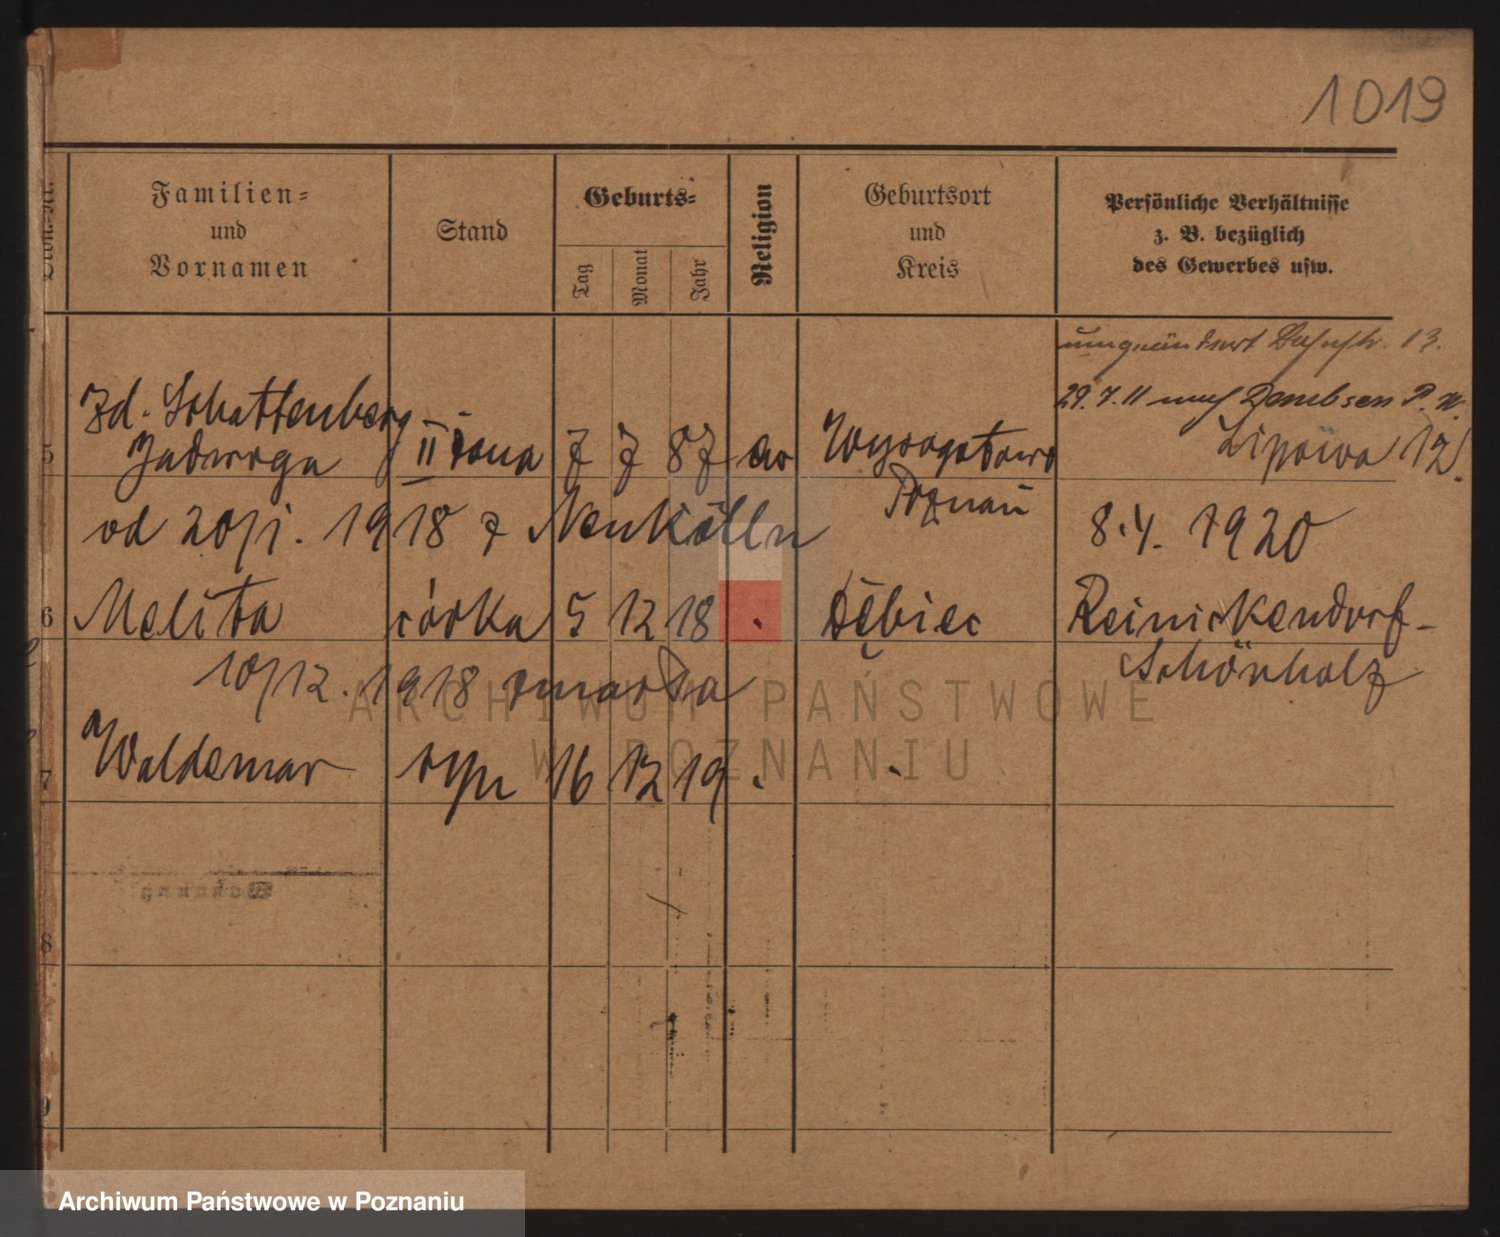 1019
Familien=
und
Vornamen
Stand
Geburts=
Tag
Monat
Jahr
Religion
Geburtsort
und
Kreis
Persönliche Verhältnisse
z. B. bezüglich
des Gewerbes usw.
13.
29.7.11 nach Dembsen P. W.
Lipowa 12.
Zd. Schattenberg
5 Jadwiga II żona 7 7 87 ew Wysogotowo
Poznań
od 20/1. 1918 z Neukölln
8.4. 1920
6 Melita córka 5 12 18 . Dębiec Reinickendorf-
Schönholz
10/12. 1918 zmarła
7 Waldemar syn 16 12 19 . .
8
9
ARCHIWUM PAŃSTWOWE
W POZNANIU
Archiwum Państwowe w Poznaniu